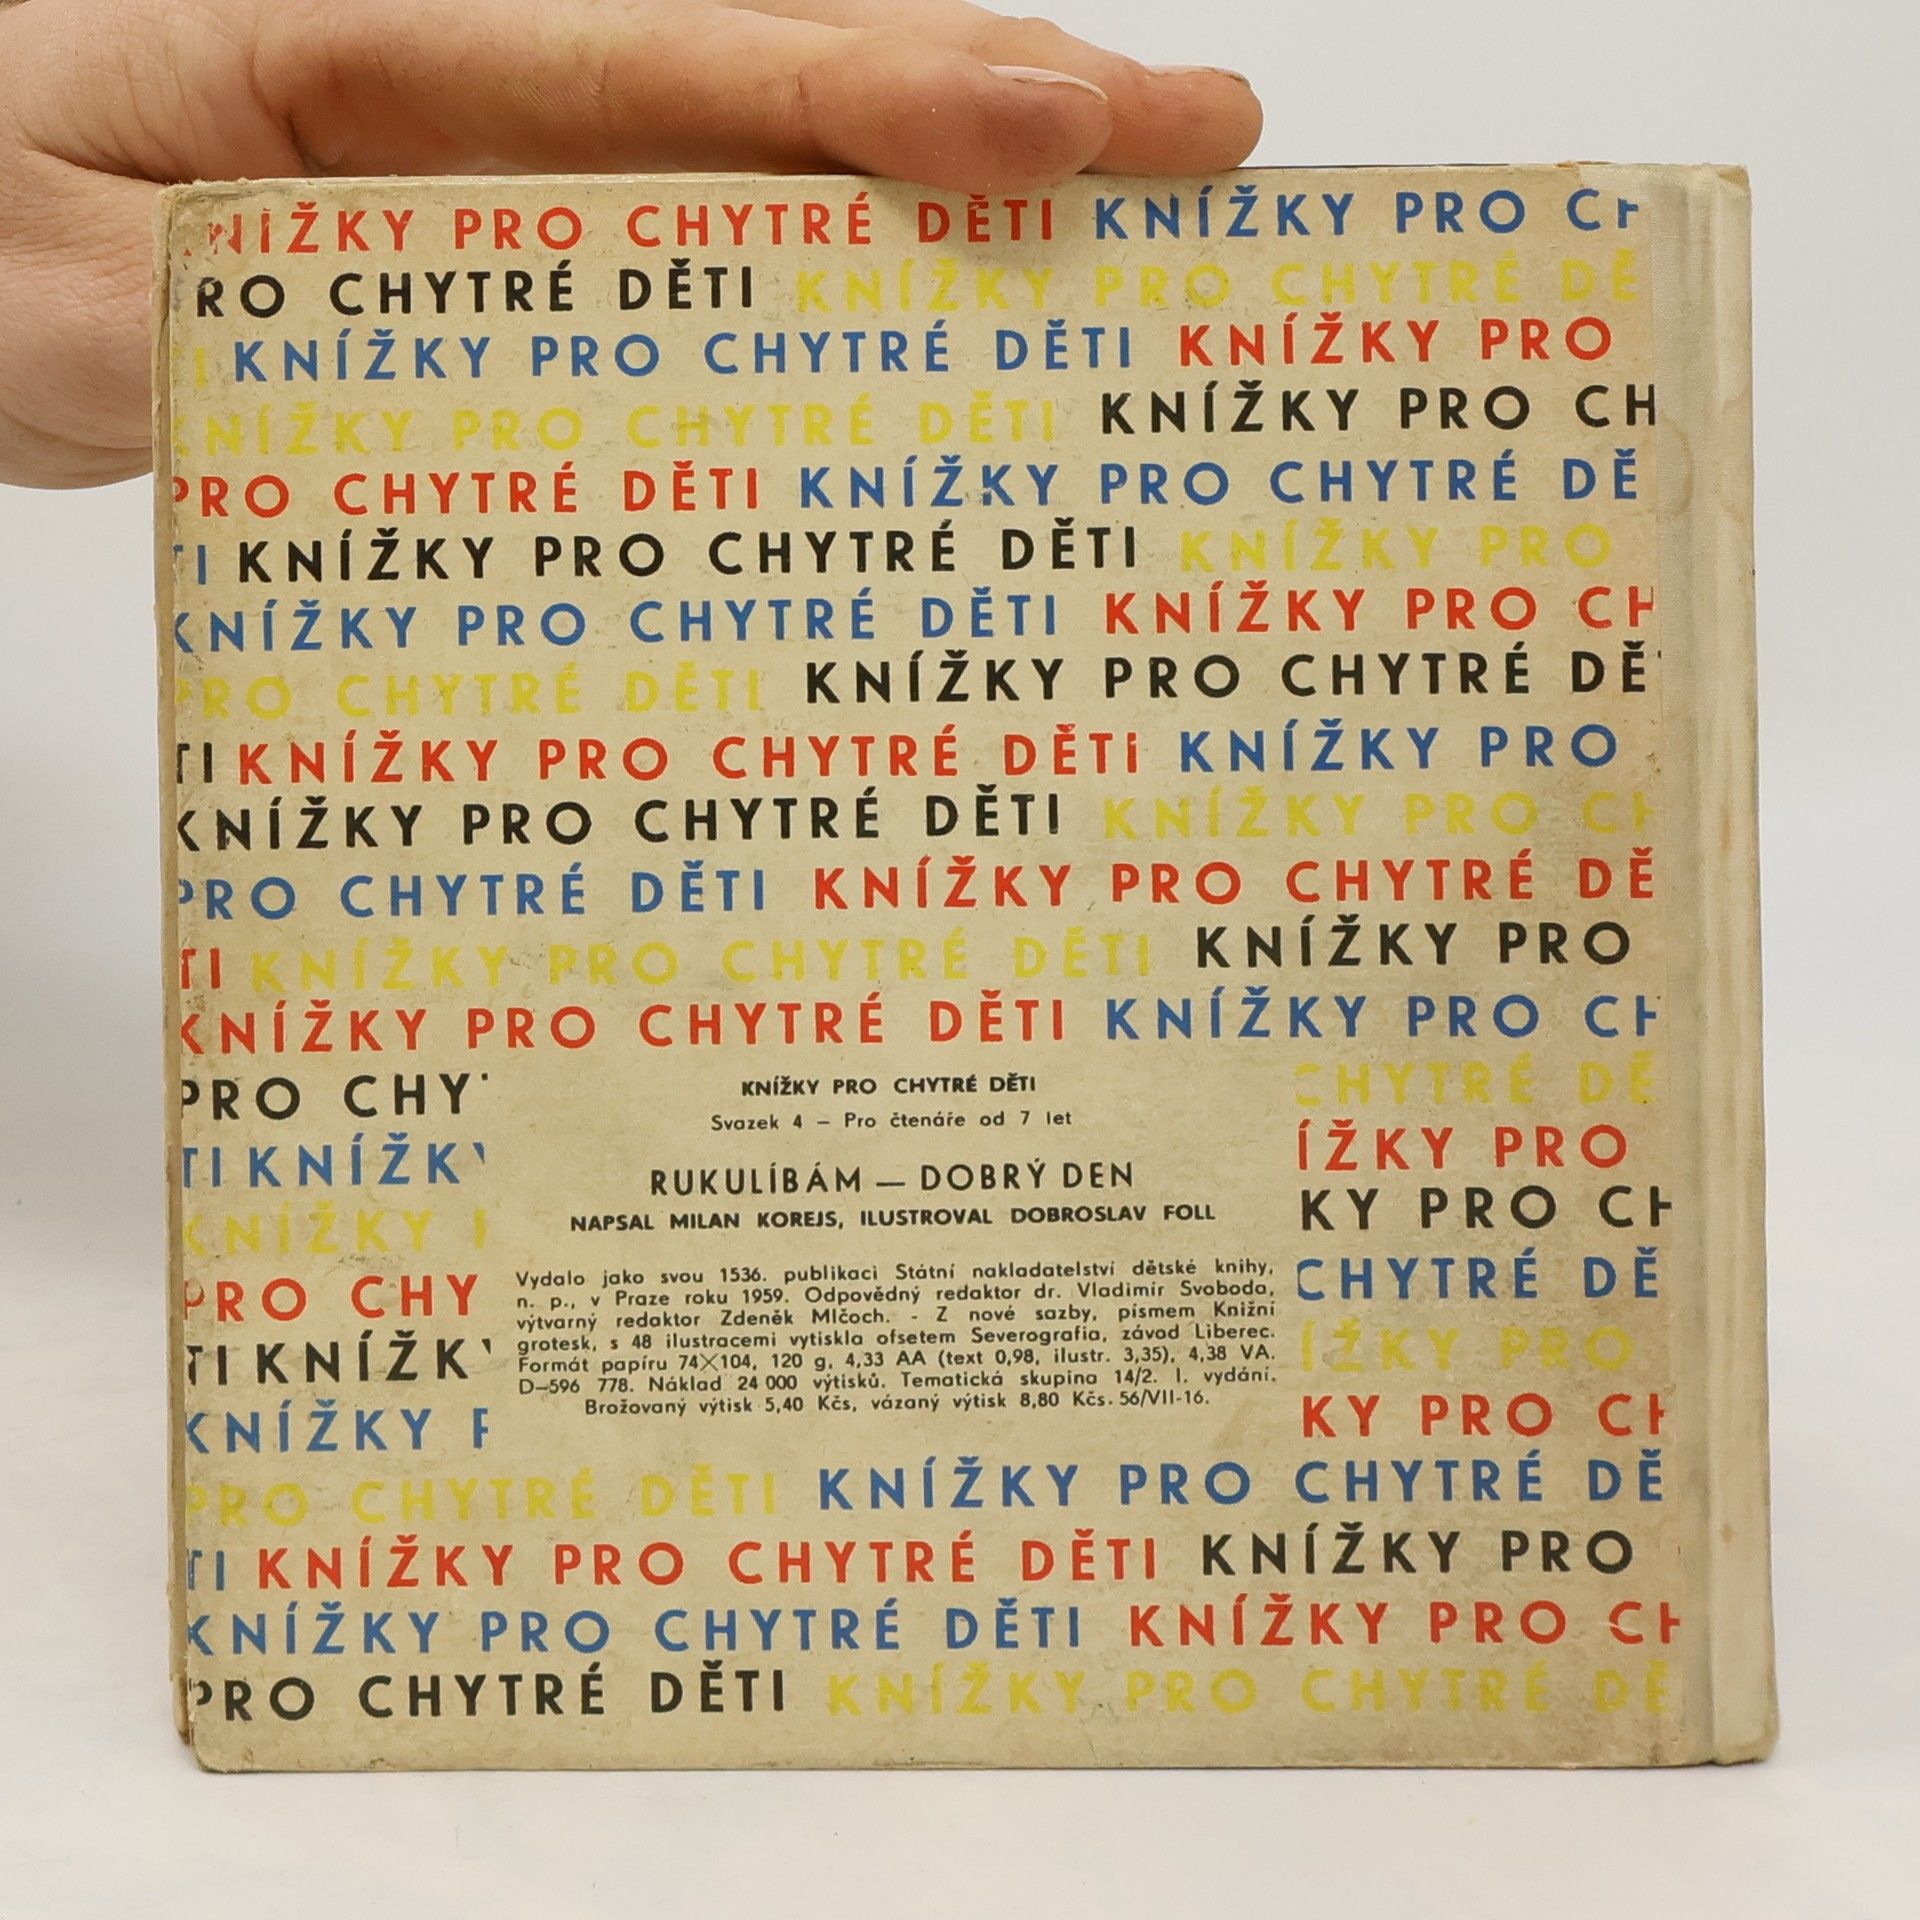 NÍŽKY PRO CHYTRÉ DĚTI KNÍŽKY PRO CH
RO CHYTRÉ DĚTI KNÍŽKY PRO CHYTRÉ DĚ
I KNÍŽKY PRO CHYTRÉ DĚTI KNÍŽKY PRO
KNÍŽKY PRO CHYTRÉ DĚTI KNÍŽKY PRO CH
PRO CHYTRÉ DĚTI KNÍŽKY PRO CHYTRÉ DĚ
TI KNÍŽKY PRO CHYTRÉ DĚTI KNÍŽKY PRO
KNÍŽKY PRO CHYTRÉ DĚTI KNÍŽKY PRO CH
PRO CHYTRÉ DĚTI KNÍŽKY PRO CHYTRÉ DĚ
TI KNÍŽKY PRO CHYTRÉ DĚTI KNÍŽKY PRO
KNÍŽKY PRO CHYTRÉ DĚTI KNÍŽKY PRO CH
PRO CHYTRÉ DĚTI KNÍŽKY PRO CHYTRÉ DĚ
TI KNÍŽKY PRO CHYTRÉ DĚTI KNÍŽKY PRO
KNÍŽKY PRO CHYTRÉ DĚTI KNÍŽKY PRO CH
PRO CHY CHYTRÉ DĚ
TI KNÍŽK ÍŽKY PRO
KNÍŽKY KY PRO CH
PRO CHY CHYTRÉ DĚ
TI KNÍŽK ÍŽKY PRO
KNÍŽKY P KY PRO CH
KNÍŽKY PRO CHYTRÉ DĚTI
Svazek 4 – Pro čtenáře od 7 let
RUKULÍBÁM — DOBRÝ DEN
NAPSAL MILAN KOREJS, ILUSTROVAL DOBROSLAV FOLL
Vydalo jako svou 1536. publikaci Státní nakladatelství dětské knihy,
n. p., v Praze roku 1959. Odpovědný redaktor dr. Vladimír Svoboda,
výtvarný redaktor Zdeněk Mlčoch. - Z nové sazby, písmem Knižní
grotesk, s 48 ilustracemi vytiskla ofsetem Severografia, závod Liberec.
Formát papíru 74×104, 120 g, 4,33 AA (text 0,98, ilustr. 3,35), 4,38 VA.
D–596 778. Náklad 24 000 výtisků. Tematická skupina 14/2. I. vydání.
Brožovaný výtisk 5,40 Kčs, vázaný výtisk 8,80 Kčs. 56/VII-16.
PRO CHYTRÉ DĚTI KNÍŽKY PRO CHYTRÉ DĚ
TI KNÍŽKY PRO CHYTRÉ DĚTI KNÍŽKY PRO
KNÍŽKY PRO CHYTRÉ DĚTI KNÍŽKY PRO CH
PRO CHYTRÉ DĚTI KNÍŽKY PRO CHYTRÉ DĚ